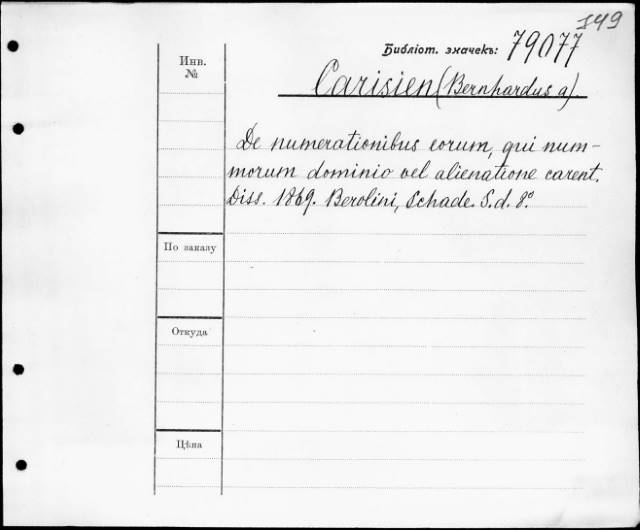 349
Библіот. значекъ: 79077
Инв.
№
Carisien (Bernhardus a).
De numerationibus eorum, qui num-
morum dominio vel alienatione carent.
Diss. 1869. Berolini, Schade. S. d. 8°.
По заказу
Откуда
Цѣна